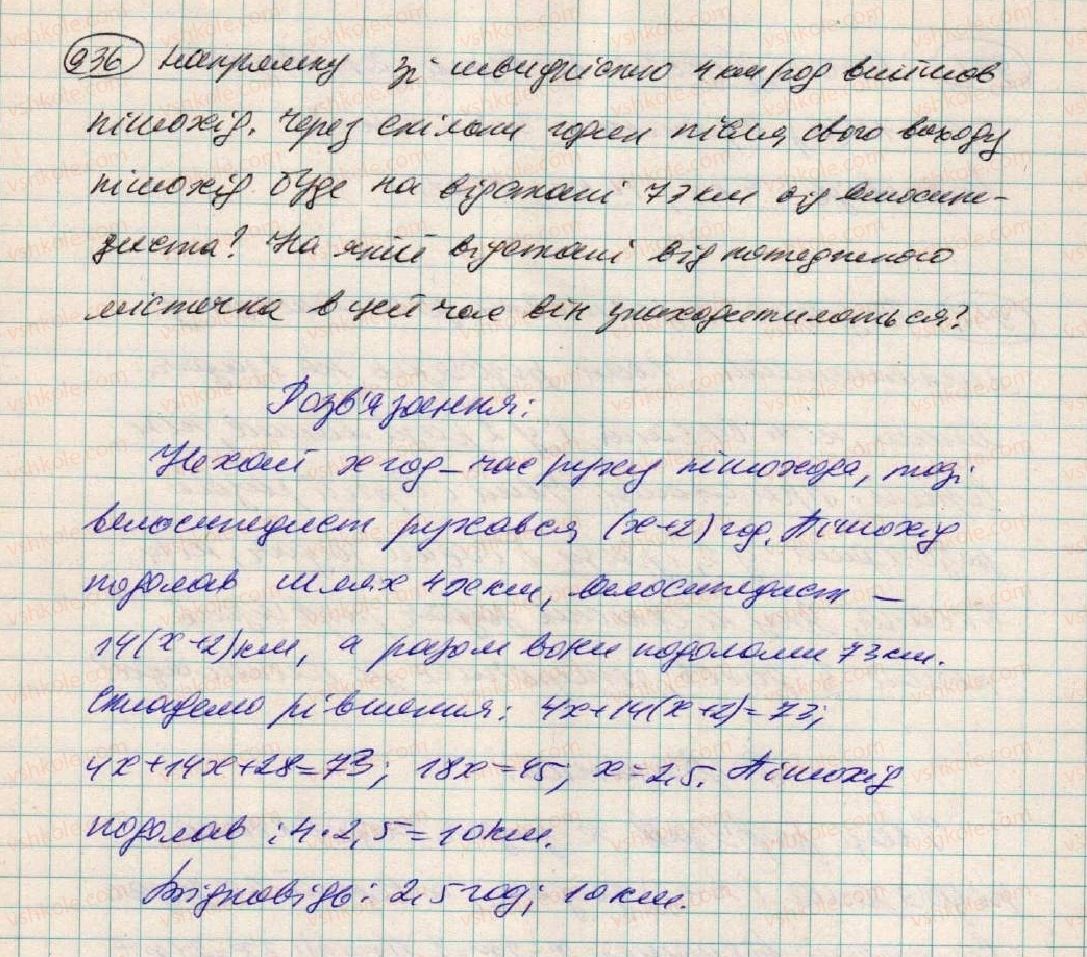 936 напрямку зі швидкістю 4 км/год вийшов
пішохід. Через скільки годин після свого виходу
пішохід буде на відстані 73 км від велосипе-
диста? На якій відстані від
містечка в цей час він знаходитиметься?
Розв'язання:
Нехай x год – час руху пішохода, тоді
велосипедист рухався (x+2) год. Пішохід
подолав шлях 4x км, велосипедист –
14(x+2) км, а разом вони подолали 73 км.
Складемо рівняння: 4x+14(x+2)=73;
4x+14x+28=73; 18x=45; x=2,5. Пішохід
подолав: 4·2,5=10 км.
Відповідь: 2,5 год; 10 км.
vshkole.com